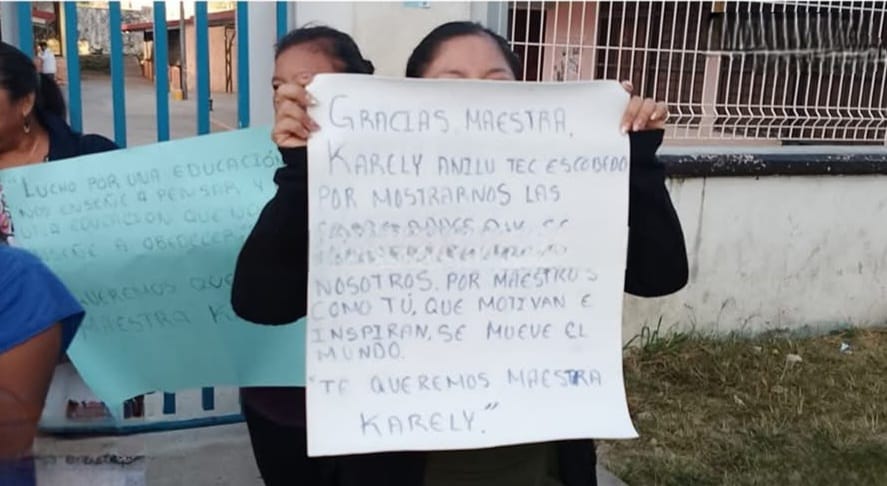 "LUCHO POR UNA EDUCACIÓN
NOS ENSEÑE A PENSAR Y
EDUCACION QUE NO
ENSEÑE A OBEDECER
QUEREMOS
MAESTRA
GRACIAS, MAESTRA,
KARELY ANILU TEC ESCOBEDO
POR MOSTRARNOS LAS
NOSOTROS. POR MAESTROS
COMO TÚ, QUE MOTIVAN E
INSPIRAN, SE MUEVE EL
MUNDO.
"TE QUEREMOS MAESTRA
KARELY."